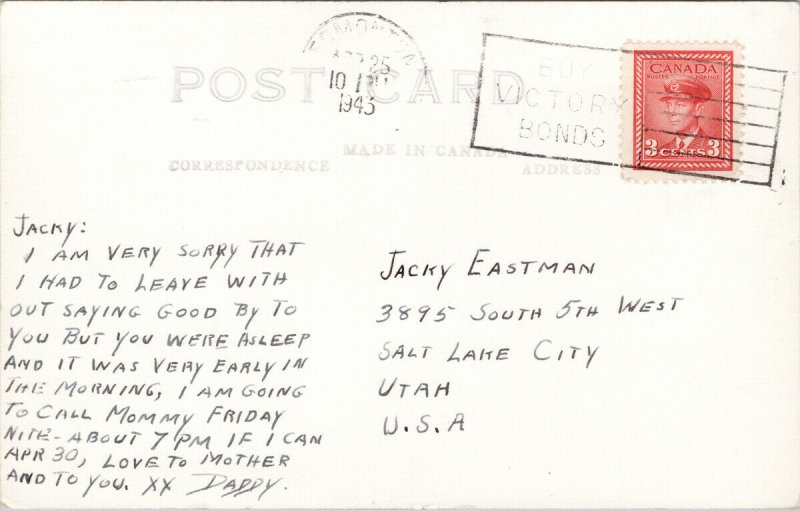 EDMONTON
APR 25
10 PM
1943
BUY
VICTORY
BONDS
CANADA
POSTES POSTAGE
3 CENTS 3
POST CARD
MADE IN CANADA
CORRESPONDENCE
ADDRESS
JACKY:
I AM VERY SORRY THAT
I HAD TO LEAVE WITH
OUT SAYING GOOD BY TO
YOU BUT YOU WERE ASLEEP
AND IT WAS VERY EARLY IN
THE MORNING, I AM GOING
TO CALL MOMMY FRIDAY
NITE - ABOUT 7 PM IF I CAN
APR 30, LOVE TO MOTHER
AND TO YOU. XX DADDY.
JACKY EASTMAN
3895 SOUTH 5TH WEST
SALT LAKE CITY
UTAH
U.S.A